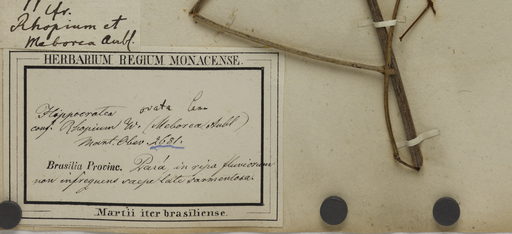 cfr.
Rhopium et
Meborea Aubl.
HERBARIUM REGIUM MONACENSE.
Hippocratea ovata Lam
conf. Rhopium W. (Meborea Aubl)
Mart. Obsv. 2681.
Brasilia Provinc. Pará in ripa fluviorum
non infrequens saepe late sarmentosa.
Martii iter brasiliense.